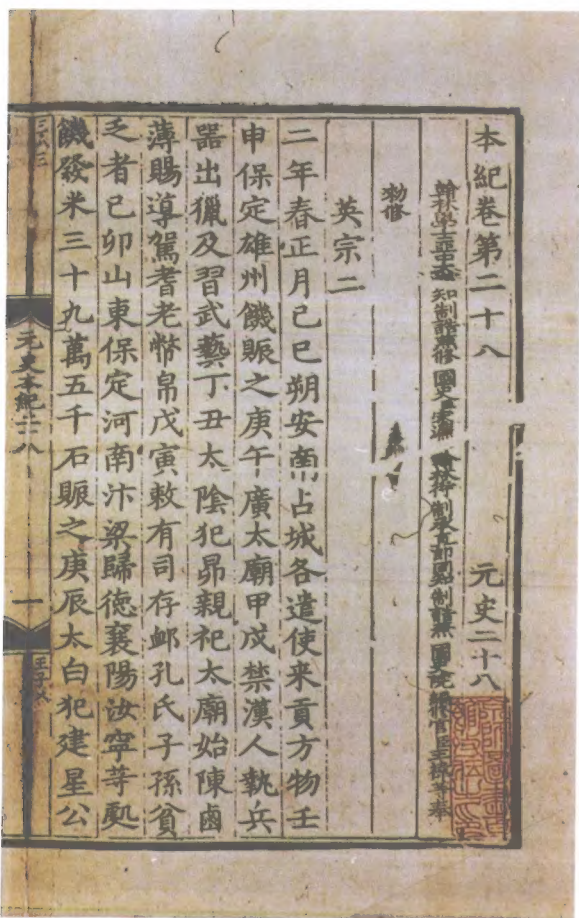 本紀卷第二十八　元史二十八
翰林學士亞中大夫知制誥兼修國史臣宋濂　翰林待制承直郎同知制誥兼國史院編修官臣王禕等奉
勑修
英宗二
二年春正月己巳朔安南占城各遣使來貢方物壬
申保定雄州饑賑之庚午廣太廟甲戌禁漢人執兵
器出獵及習武藝丁丑太陰犯昴親祀太廟始陳鹵
薄賜導駕耆老幣帛戊寅敕有司存卹孔氏子孫貧
乏者己卯山東保定河南汴梁歸德襄陽汝寧荨䖏
饑發米三十九萬五千石賑之庚辰太白犯建星公
元史本紀二十八
一